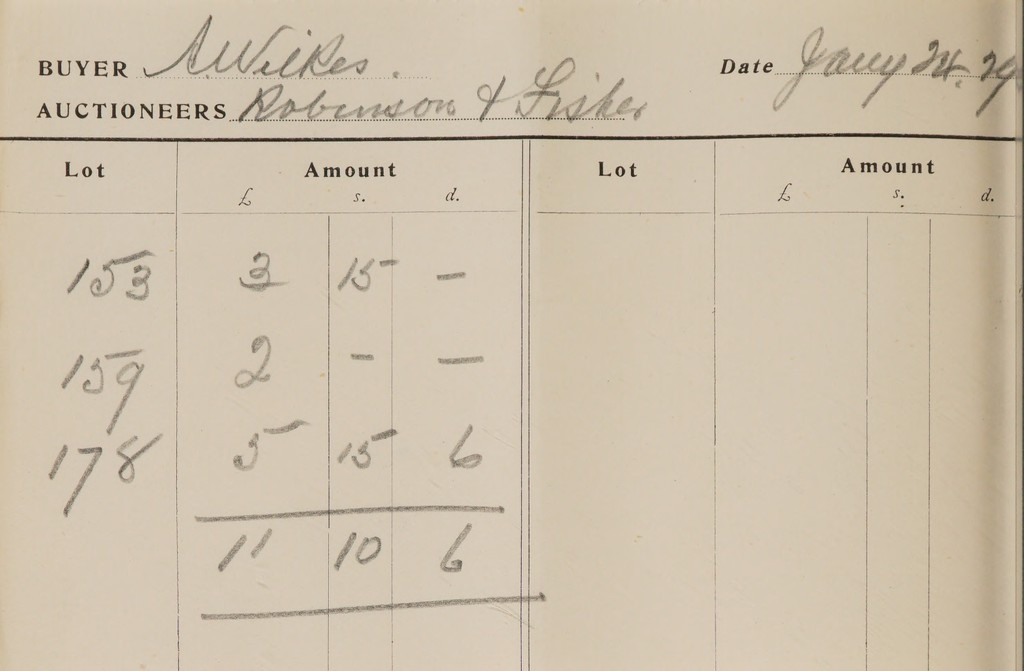 BUYER A. Wilkes. Date Jany 24. 29
AUCTIONEERS Robinson & Fisher
Lot Amount Lot Amount
£ s. d. £ s. d.
153 3 15 –
159 2 – –
178 5 15 6
11 10 6